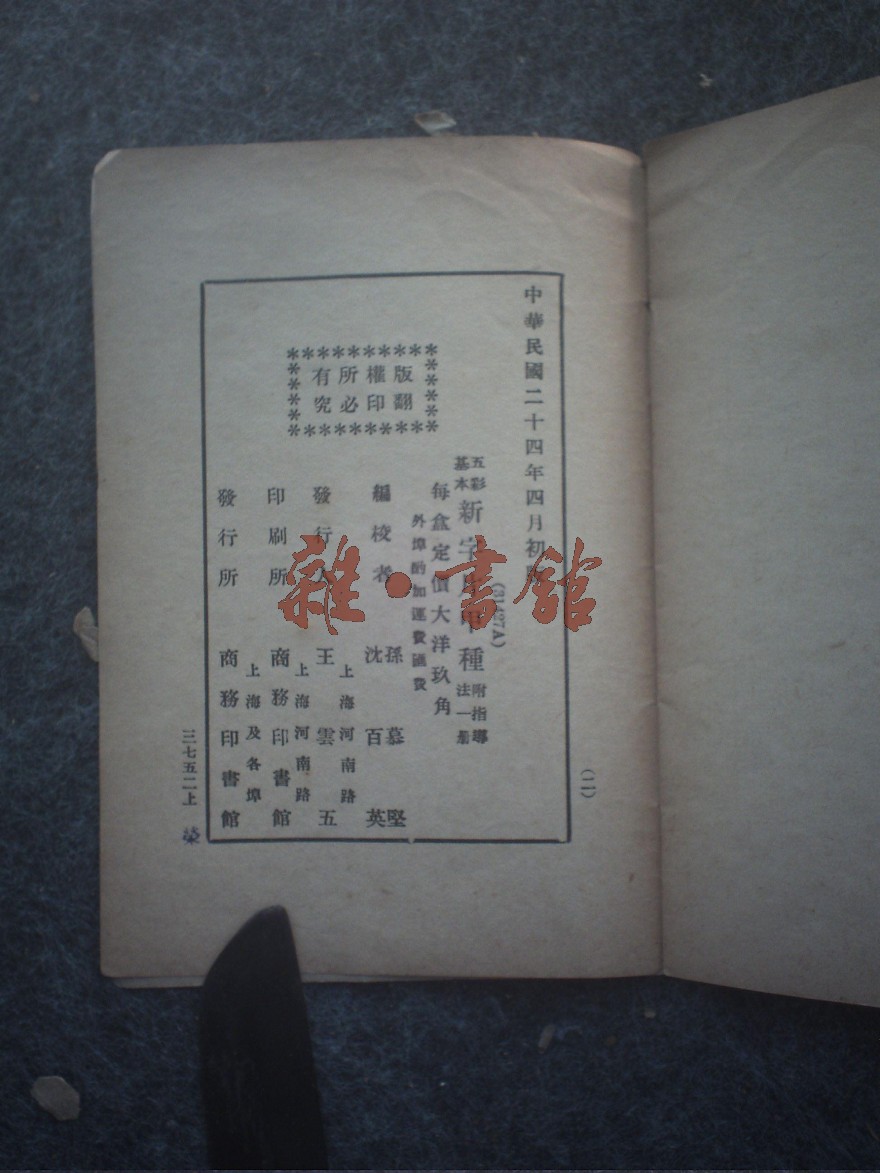 中華民國二十四年四月初版
(二)
(81427A)
五彩基本新字片甲種附指導法一册
每盒定價大洋玖角
外埠酌加運費匯費
版權所有
翻印必究
編校者 孫慕堅
沈百英
發行人 王雲五
上海河南路
印刷所 商務印書館
上海河南路
發行所 商務印書館
上海及各埠
三七五二上
榮
雜·書館